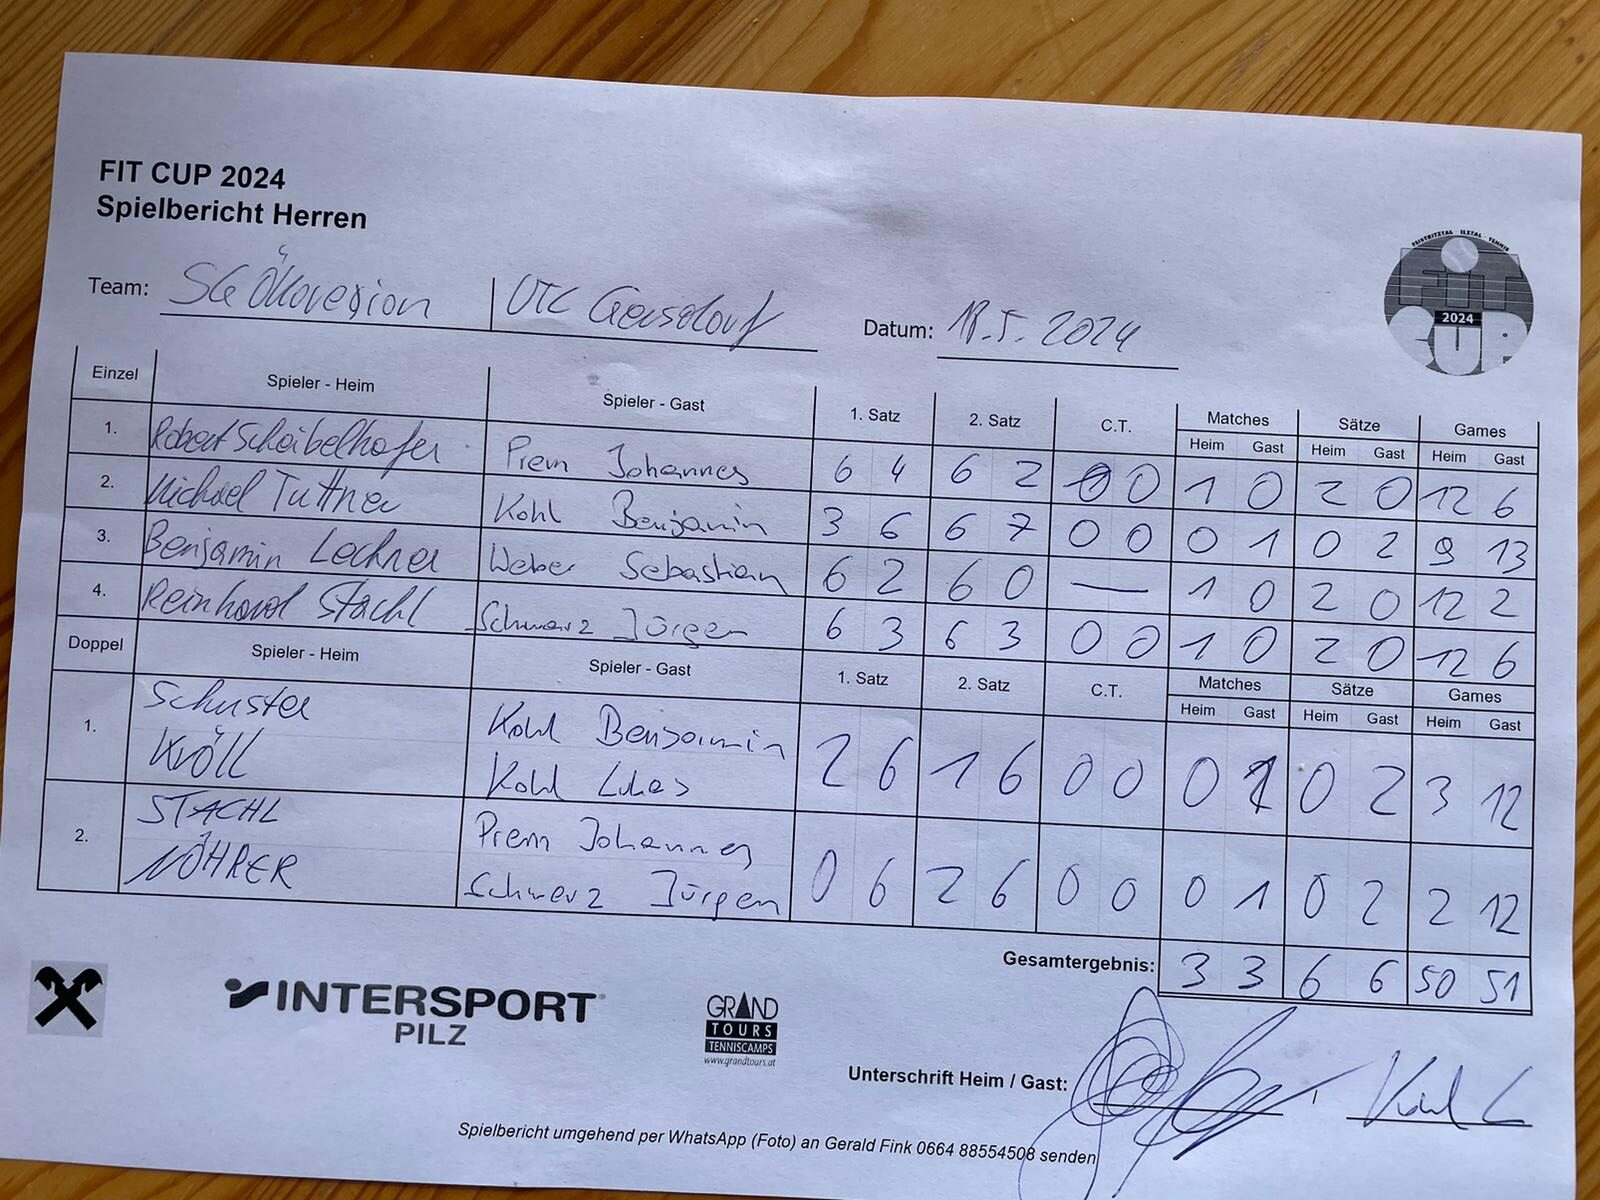 FIT CUP 2024
Spielbericht Herren
FEISTRITZTAL ILZTAL TENNIS
FIT
2024
CUP
Team: SG Ökoregion UTC Gersdorf Datum: 18.5.2024
Einzel Spieler - Heim Spieler - Gast 1. Satz 2. Satz C.T. Matches Sätze Games
Heim Gast Heim Gast Heim Gast
1. Robert Scheibelhofer Prem Johannes 6 4 6 2 0 0 1 0 2 0 12 6
2. Michael Tuttner Kohl Benjamin 3 6 6 7 0 0 0 1 0 2 9 13
3. Benjamin Lechner Weber Sebastian 6 2 6 0 — 1 0 2 0 12 2
4. Reinhard Stachl Schwarz Jürgen 6 3 6 3 0 0 1 0 2 0 12 6
Doppel Spieler - Heim Spieler - Gast 1. Satz 2. Satz C.T. Matches Sätze Games
Heim Gast Heim Gast Heim Gast
1. Schuster Kohl Benjamin
Kröll Kohl Lukas 2 6 1 6 0 0 0 1 0 2 3 12
2. STACHL Prem Johannes
NÖHRER Schwarz Jürgen 0 6 2 6 0 0 0 1 0 2 2 12
Gesamtergebnis: 3 3 6 6 50 51
INTERSPORT
PILZ
GRAND
TOURS
TENNISCAMPS
www.grandtours.at
Unterschrift Heim / Gast: Kohl L
Spielbericht umgehend per WhatsApp (Foto) an Gerald Fink 0664 88554508 senden